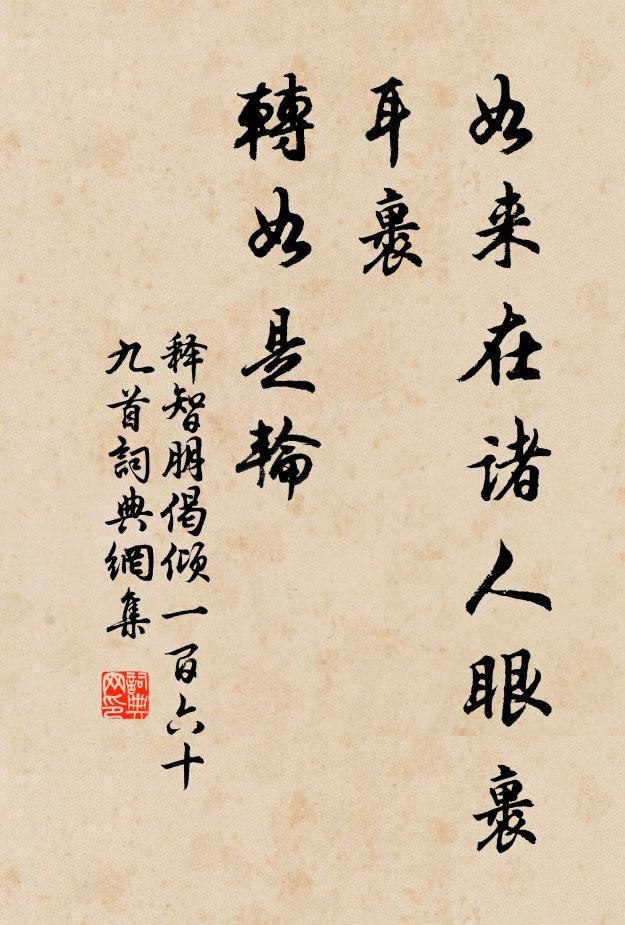 如来在诸人眼裹
耳裹
轉如是輪
释智朋偈倾一百六十
九首詞典網集
詞典
网印